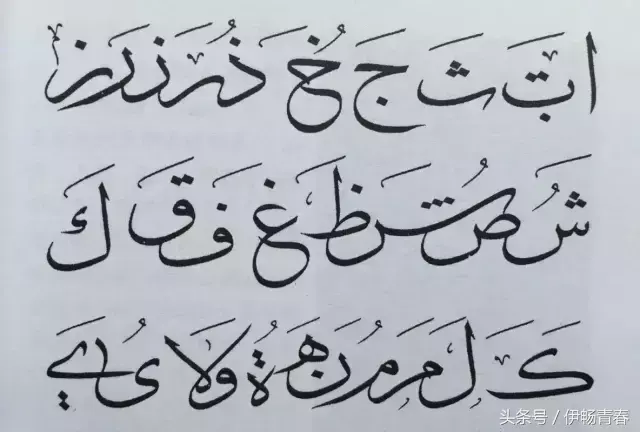 ا ت ث ج خ ذ ر ز ر ز
ش ص ش ظ غ ف ق ك
ك ل م م ن ه ة و لا ى ي
头条号 / 伊畅青春